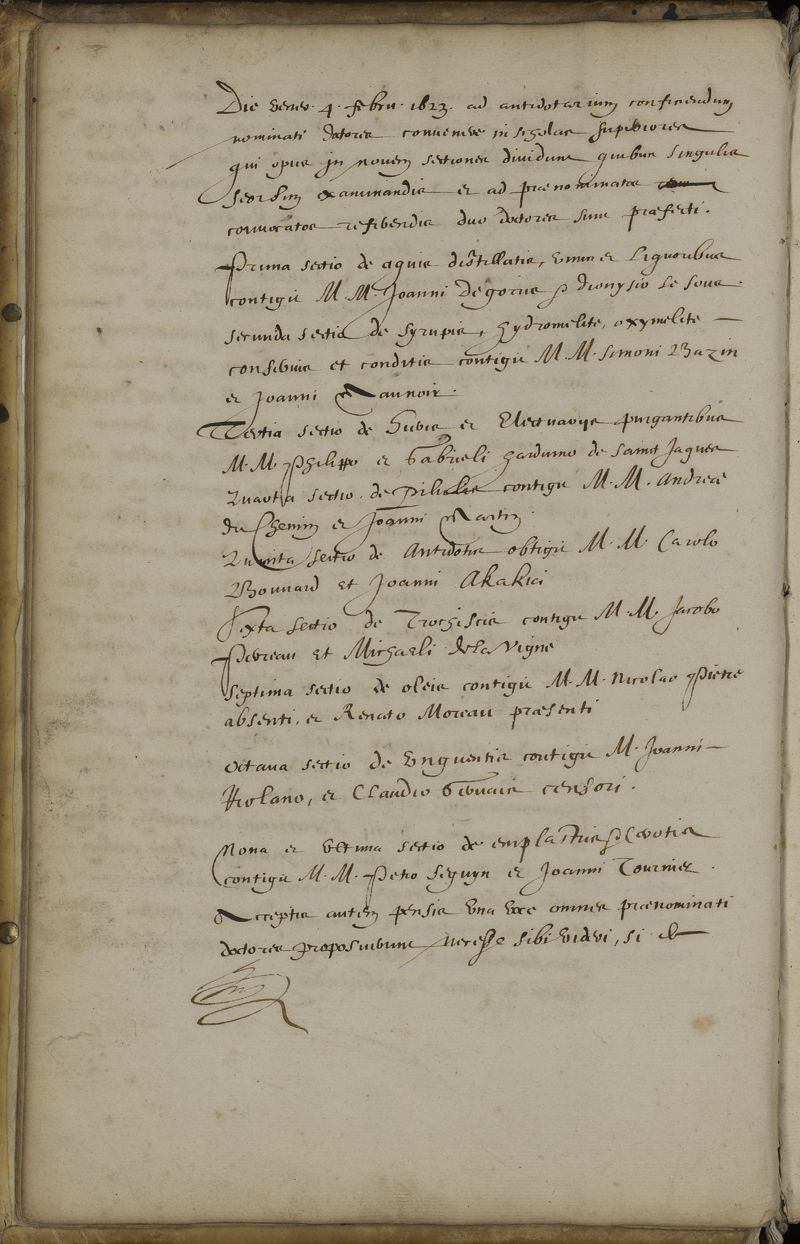 Die vener. 4. febru. 1623. ad antidotarium conficiendum
nominati doctores convenere in scholas superiores
qui opus in novem sectiones dividunt quibus singulis
seorsim examinandis et ad praenominatos
convocatos referendis duo doctores sunt praefecti.
Prima sectio de aquis distillatis, vinis et liquoribus
contigit M. M. Joanni Degorris & dionysio le soub.
secunda sectio de syrupis, hydromelite, oxymelite
conservis et conditis contigit M. M. Simoni Bazin
et Joanni Maunoir.
Tertia sectio de et Electuariis purgantibus
M. M. Philippo et Gabrieli harduino de Sainct Jaques
Quarta sectio de Pilulis contigit M. M. Andreae
du Chemin et Joanni Martin
Quinta sectio de Antidotis obtigit M. M. Carolo
Bouvard et Joanni Akakia
Sexta sectio de Trochiscis contigit M. M. Jacobo
Perreau et Michaeli de la Vigne
Septima sectio de oleis contigit M. M. Nicolao Pietre
absenti, et Renato Moreau praesenti
Octava sectio de Unguentis contigit M. Joanni
Riolano, et Claudio Gervais censori.
Nona et Ultima sectio de emplastris & Cerotis
contigit M. M. Petro Seguyn et Joanni Tournier.
Acceptis autem pensis una voce omnes praenominati
doctores proposuerunt necesse sibi videri, si